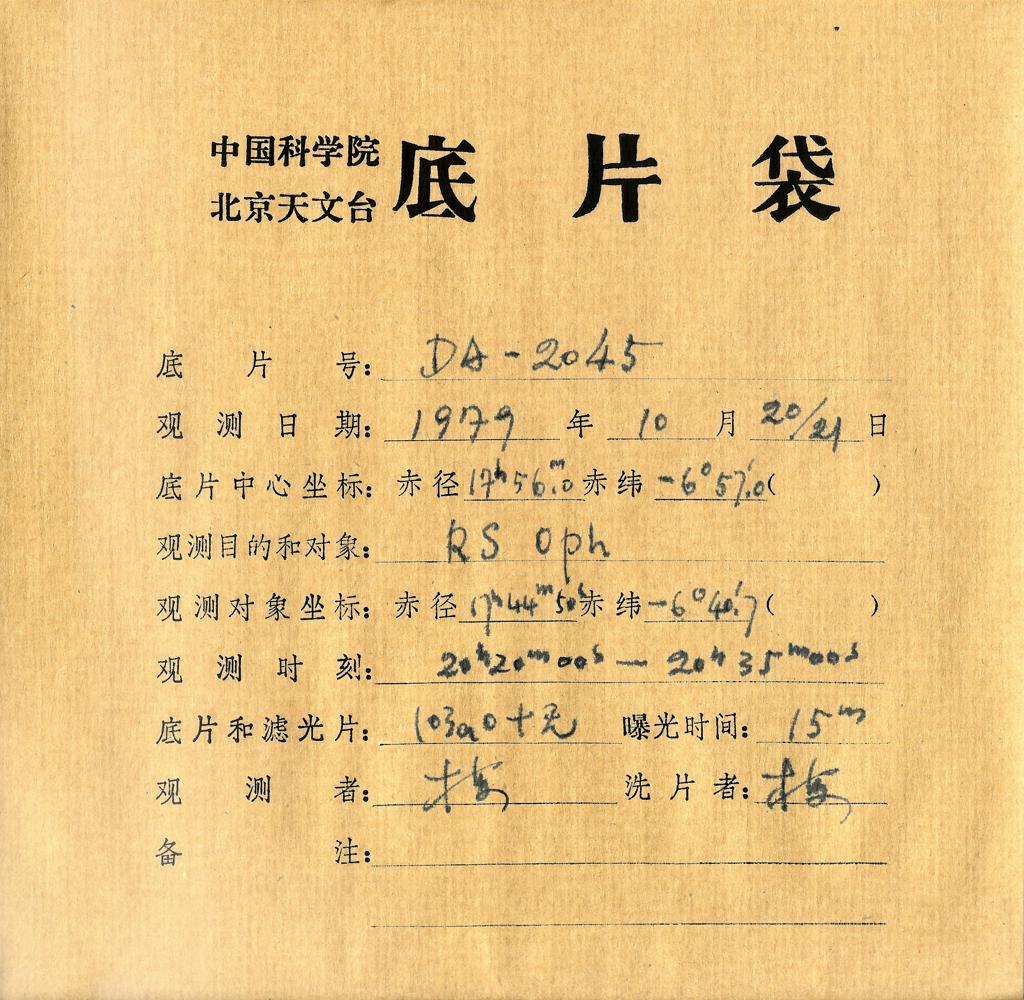 中国科学院
北京天文台 底片袋
底片号: DA-2045
观测日期: 1979 年 10 月 20/21 日
底片中心坐标: 赤径 17ʰ56ᵐ.0 赤纬 -6°57′.0 ( )
观测目的和对象: RS Oph
观测对象坐标: 赤径 17ʰ44ᵐ50ˢ 赤纬 -6°40′.7 ( )
观测时刻: 20ʰ20ᵐ00ˢ — 20ʰ35ᵐ00ˢ
底片和滤光片: 103aO+无 曝光时间: 15ᵐ
观测者: 梅 洗片者: 梅
备注: